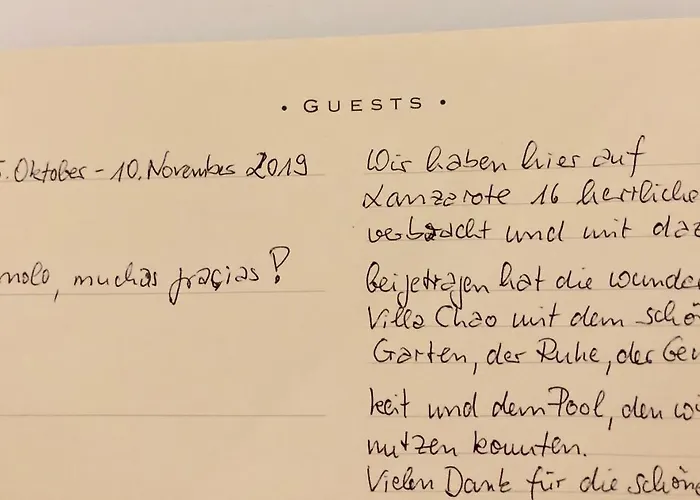 • GUESTS •
5. Oktober - 10. November 2019
molo, muchas graçias!
Wir haben hier auf
Lanzarote 16 herrliche
verbracht und mit daz
beigetragen hat die wunder
Villa Chao mit dem schö
Garten, der Ruhe, der Ge
keit und dem Pool, den wi
nutzen konnten.
Vielen Dank für die schön